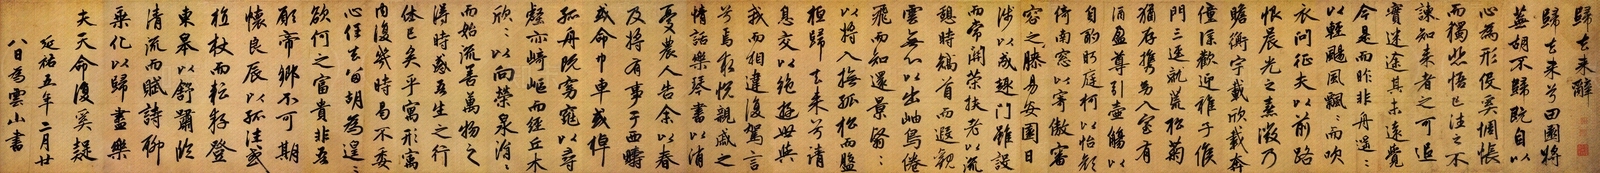 歸去來辭
歸去來兮田園將
蕪胡不歸既自以
心為形役奚惆悵
而獨悲悟已往之不
諫知來者之可追
實迷途其未遠覺
今是而昨非舟遥〻
以輕颺風飄〻而吹
衣問征夫以前路
恨晨光之熹微乃
瞻衡宇載欣載奔
僮僕歡迎稚子候
門三逕就荒松菊
猶存攜幼入室有
酒盈尊引壺觴以
自酌眄庭柯以怡顏
倚南窓以寄傲審
容之膝易安園日
涉以成趣門雖設
而常關策扶老以流
憩時矯首而遐觀
雲無心以出岫鳥倦
飛而知還景翳〻
以將入撫孤松而盤
桓歸去來兮請
息交以絕遊世與
我而相違復駕言
兮焉求悅親戚之
情話樂琴書以消
憂農人告余以春
及將有事于西疇
或命巾車或棹
孤舟既窈窕以尋
壑亦崎嶇而經丘木
欣〻以向榮泉涓〻
而始流善萬物之
得時感吾生之行
休已矣乎寓形寓
内復幾時曷不委
心任去留胡為遑〻
欲何之富貴非吾
願帝鄉不可期
懷良辰以孤往或
植杖而耘耔登
東皋以舒嘯臨
清流而賦詩聊
乘化以歸盡樂
夫天命復奚疑
延祐五年二月廿
八日為雲山書